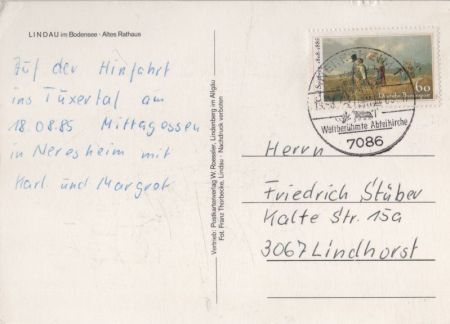 LINDAU im Bodensee - Altes Rathaus
Auf der Hinfahrt
ins Tuxertal am
18.08.85 Mittagessen
in Neresheim mit
Karl und Margret
Vertrieb: Postkartenverlag W. Roessler, Lindenberg im Allgäu
Fot. Franz Thorbecke, Lindau · Nachdruck verboten
60
Deutsche Bundespost
Weltberühmte Abteikirche
7086
Herrn
Friedrich Stüber
Kalte Str. 15a
3067 Lindhorst